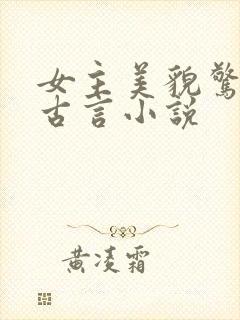 女主美貌驚
古言小說
黃凌霜